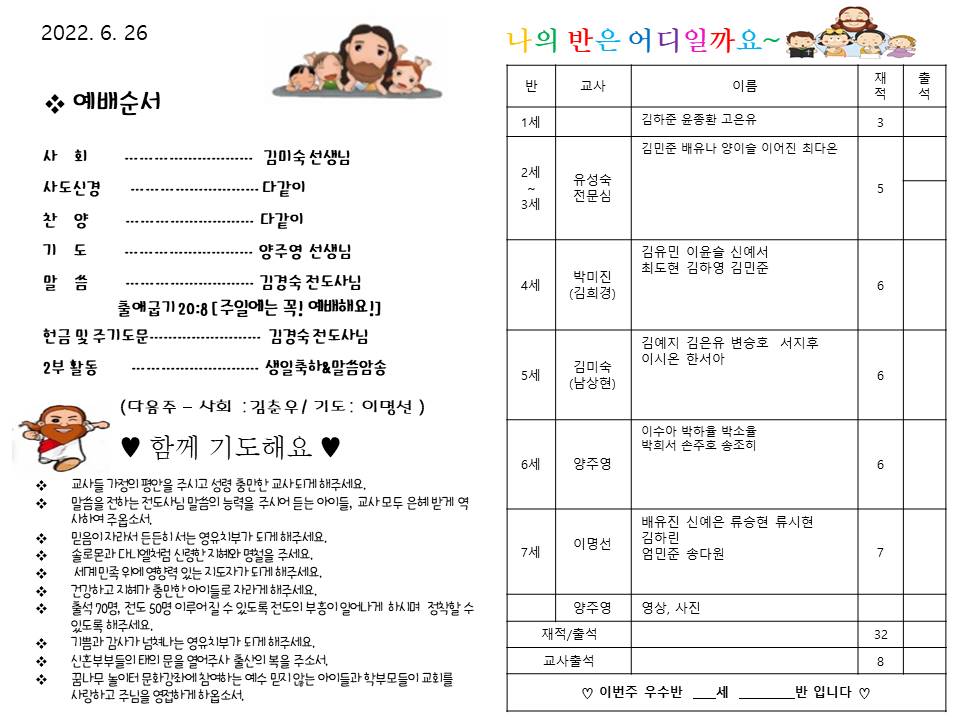 2022. 6. 26
❖ 예배순서
사 회 --------------------------- 김미숙 선생님
사도신경 --------------------------- 다같이
찬 양 --------------------------- 다같이
기 도 --------------------------- 양주영 선생님
말 씀 --------------------------- 김경숙 전도사님
출애굽기 20:8 [ 주일에는 꼭! 예배해요!]
헌금 및 주기도문------------------------ 김경숙 전도사님
2부 활동 --------------------------- 생일축하&말씀암송
(다음주 – 사회 : 김춘우/ 기도 : 이명선 )
♥ 함께 기도해요 ♥
❖ 교사들 가정의 평안을 주시고 성령 충만한 교사 되게 해주세요.
❖ 말씀을 전하는 전도사님 말씀의 능력을 주시어 듣는 아이들, 교사 모두 은혜 받게 역
사하여 주옵소서.
❖ 믿음이 자라서 든든히 서는 영유치부가 되게 해주세요.
❖ 솔로몬과 다니엘처럼 신령한 지혜와 명철을 주세요.
❖ 세계 민족 위에 영향력 있는 지도자가 되게 해주세요.
❖ 건강하고 지혜가 충만한 아이들로 자라게 해주세요.
❖ 출석 70명, 전도 50명 이루어 질 수 있도록 전도의 부흥이 일어나게 하시며 정착할 수
있도록 해주세요.
❖ 기쁨과 감사가 넘쳐나는 영유치부가 되게 해주세요.
❖ 신혼부부들의 태의 문을 열어주사 출산의 복을 주소서.
❖ 꿈나무 놀이터 문화강좌에 참여하는 예수 믿지 않는 아이들과 학부모들이 교회를
사랑하고 주님을 영접하게 하옵소서.
나의 반은 어디일까요~
반 교사 이름 재적 출석
1세 김하준 윤종환 고은유 3
2세 ~ 3세 유성숙 전문심 김민준 배유나 양이슬 이어진 최다온 5
4세 박미진 (김희경) 김유민 이윤슬 신예서
최도현 김하영 김민준 6
5세 김미숙 (남상현) 김예지 김은유 변승호 서지후
이시온 한서아 6
6세 양주영 이수아 박하율 박소율
박희서 손주호 송조히 6
7세 이명선 배유진 신예은 류승현 류시현
김하린
엄민준 송다원 7
양주영 영상, 사진
재적/출석 32
교사출석 8
♡ 이번주 우수반 ___세 ________반 입니다 ♡